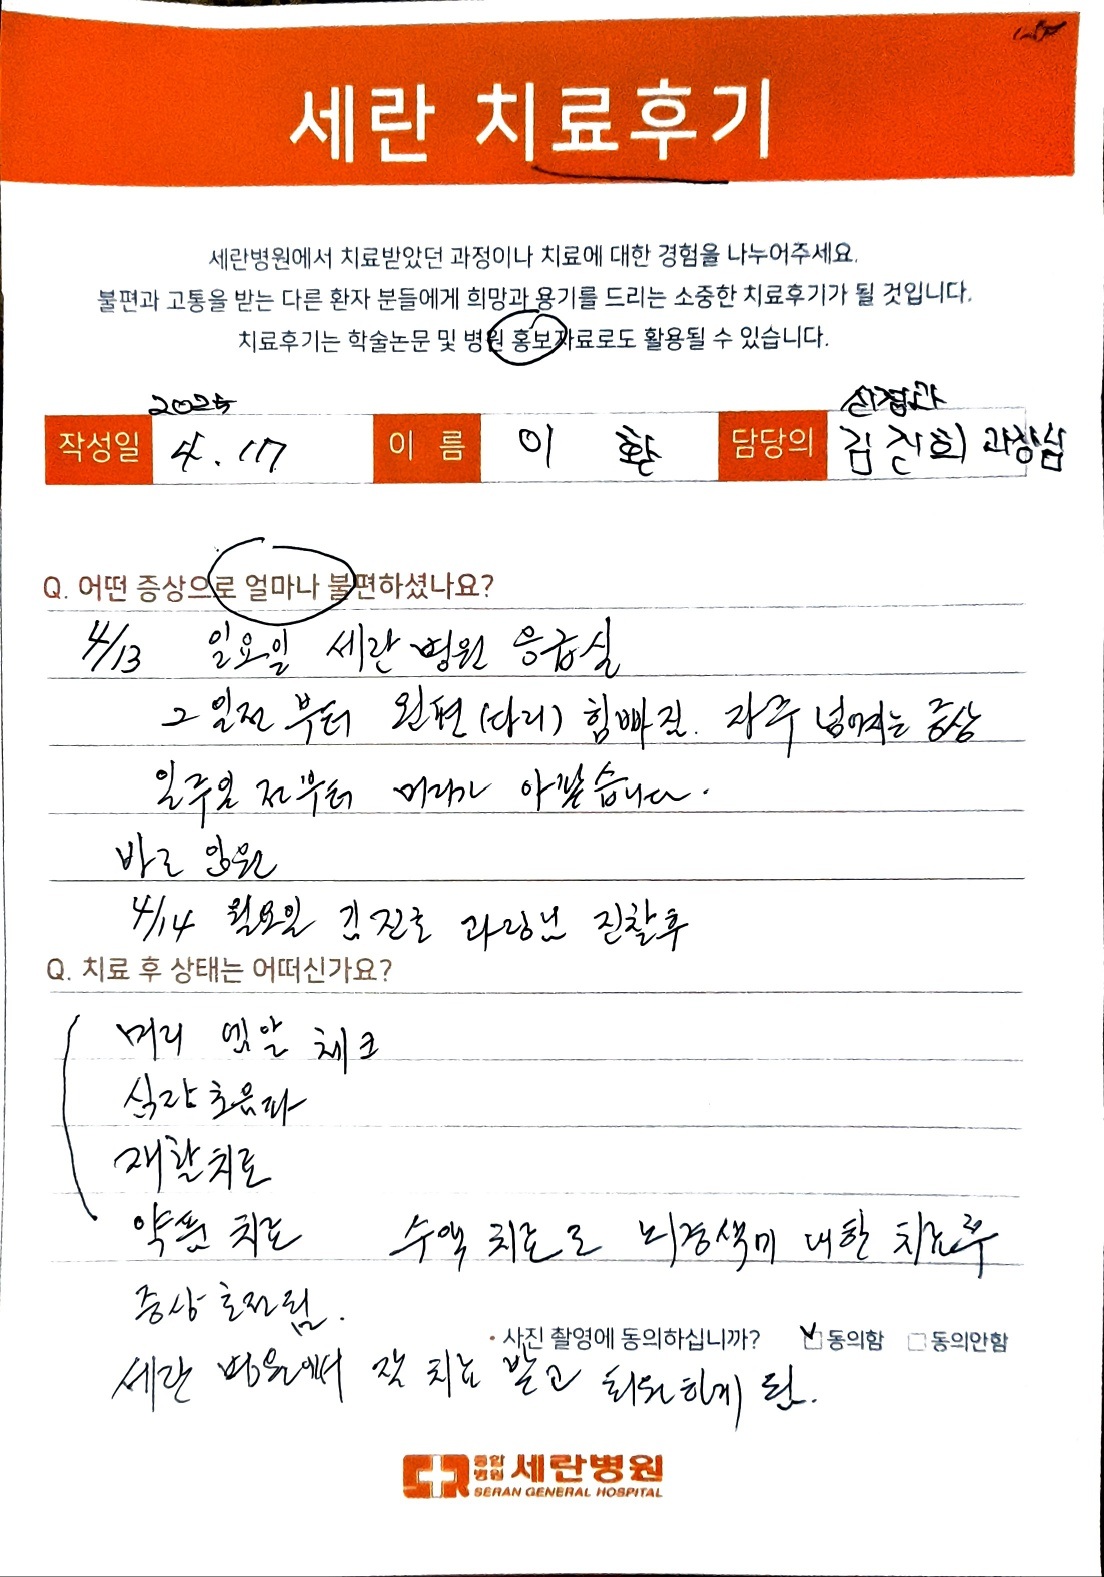 세란 치료후기
세란병원에서 치료받았던 과정이나 치료에 대한 경험을 나누어주세요.
불편과 고통을 받는 다른 환자 분들에게 희망과 용기를 드리는 소중한 치료후기가 될 것입니다.
치료후기는 학술논문 및 병원 홍보자료로도 활용될 수 있습니다.
작성일 2025 4. 17 이 름 이 환 담당의 신경과 김진희 과장님
Q. 어떤 증상으로 얼마나 불편하셨나요?
4/13 일요일 세란병원 응급실
그 일전부터 왼편(다리) 힘빠짐. 자주 넘어지는 증상
일주일 전부터 머리가 아팠습니다.
바로 입원
4/14 월요일 김진호 과장님 진찰후
Q. 치료 후 상태는 어떠신가요?
머리 엠알 체크
심장초음파
재활치료
약물 치료 수액 치료로 뇌경색에 대한 치료후
증상 호전됨.
• 사진 촬영에 동의하십니까? 동의함 동의안함
세란 병원에서 잘 치료 받고 퇴원하게 됨.
종합병원 세란병원
SERAN GENERAL HOSPITAL